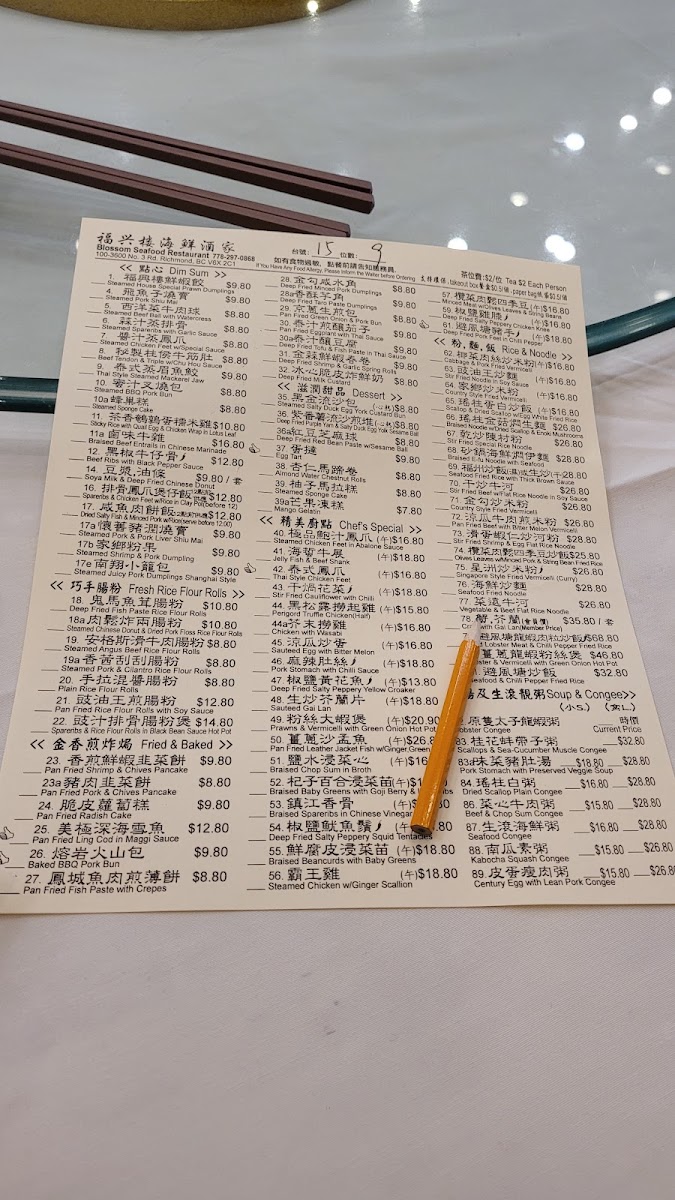 福兴楼海鮮酒家
Blossom Seafood Restaurant 778-297-0868
100-3600 No. 3 Rd. Richmond, BC V6X 2C1
台號: 15 位數: 9
如有食物過敏, 點餐前請告知服務員.
If You Have Any Food Allergy, Please Inform the Water before Ordering
茶位費:$2/位 Tea $2 Each Person
<< 點心 Dim Sum >>
1. 福興樓鮮蝦餃 $9.80
Steamed House Special Prawn Dumplings
4. 飛魚子燒賣 $9.80
Steamed Pork Shiu Mai
5. 西洋菜牛肉球 $8.80
Steamed Beef Ball with Watercress
6. 蒜汁蒸排骨 $8.80
Steamed Spareribs with Garlic Sauce
7. 醬汁蒸鳳爪 $8.80
Steamed Chicken Feet w/Special Sauce
8. 秘製柱侯牛筋肚 $8.80
Beef Tendon & Triple w/Chu Hou Sauce
9. 泰式蒸眉魚鮫 $9.80
Thai Style Steamed Mackerel Jaw
10. 蜜汁叉燒包 $8.80
Steamed BBQ Pork Bun
10a 蜂巢糕 $8.80
Steamed Sponge Cake
11. 茶香鵪鶉蛋糯米雞 $10.80
Sticky Rice with Quail Egg & Chicken Wrap in Lotus Leaf
11a 鹵味牛雜 $16.80
Braised Beef Entrails in Chinese Marinade
12. 黑椒牛仔骨 $12.80
Beef Ribs with Black Pepper Sauce
14. 豆漿,油條 $9.80 / 套
Soya Milk & Deep Fried Chinese Donut
16. 排骨鳳爪煲仔飯 $9.80
Spareribs & Chicken Feet w/Rice in Clay Pot(before 12)
17. 咸魚肉餅飯 $12.80
Dried Salty Fish & Minced Pork w/Rice(serve before 12:00)
17a 懷舊豬潤燒賣 $9.80
Steamed Pork & Pork Liver Shiu Mai
17b 家鄉粉果 $9.80
Steamed Shrimp & Pork Dumpling
17e 南翔小籠包 $9.80
Steamed Juicy Pork Dumplings Shanghai Style
<< 巧手腸粉 Fresh Rice Flour Rolls >>
18. 鬼馬魚茸腸粉 $10.80
Deep Fried Fish Paste Rice Flour Rolls
18a 肉鬆炸兩腸粉 $10.80
Steamed Chinese Donut & Dried Pork Floss Rice Flour Rolls
19. 安格斯滑牛肉腸粉 $8.80
Steamed Angus Beef Rice Flour Rolls
19a 香茜刮刮腸粉 $8.80
Steamed Pork & Cilantro Rice Flour Rolls
20. 手拉混醬腸粉 $8.80
Plain Rice Flour Rolls
21. 豉油王煎腸粉 $12.80
Pan Fried Rice Flour Rolls with Soy Sauce
22. 豉汁排骨腸粉煲 $14.80
Spareribs & Rice Flour Rolls in Black Bean Sauce Hot Pot
<< 金香煎炸焗 Fried & Baked >>
23. 香煎鮮蝦韮菜餅 $9.80
Pan Fried Shrimp & Chives Pancake
23a 豬肉韮菜餅 $8.80
Pan Fried Pork & Chives Pancake
24. 脆皮蘿蔔糕 $9.80
Pan Fried Radish Cake
25. 美極深海雪魚 $12.80
Pan Fried Ling Cod in Maggi Sauce
26. 熔岩火山包 $9.80
Baked BBQ Pork Bun
27. 鳳城魚肉煎薄餅 $8.80
Pan Fried Fish Paste with Crepes
28. 金勾咸水角 $8.80
Deep Fried Minced Pork Dumplings
28a 香酥芋角 $8.80
Deep Fried Taro Paste Dumplings
29. 京蔥生煎包 $8.80
Pan Fried Green Onion & Pork Bun
30. 泰汁煎釀茄子 $9.80
Pan Fried Eggplant with Thai Sauce
30a 泰汁釀豆腐 $9.80
Deep Fried Tofu & Fish Paste in Thai Sauce
31. 金蒜鮮蝦春卷 $9.80
Deep Fried Shrimp & Garlic Spring Rolls
32. 冰心脆皮炸鮮奶 $8.80
Deep Fried Milk Custard
<< 滋潤甜品 Dessert >>
35. 黑金流沙包 $8.80
Steamed Salty Duck Egg York Custard Bun
36. 紫番薯流沙煎堆 $8.80
Deep Fried Purple Yam & Salty Duck Egg York Sesame Ball
36a 紅豆芝麻球 $8.80
Deep Fried Red Bean Paste w/Sesame Ball
37. 蛋撻 $9.80
Egg Tart
38. 杏仁馬蹄卷 $8.80
Almond Water Chestnut Rolls
39. 柚子馬拉糕 $8.80
Steamed Sponge Cake
39a 芒果凍糕 $7.80
Mango Gelatin
<< 精美廚點 Chef's Special >>
40. 極品鮑汁鳳爪 (午)$16.80
Steamed Chicken Feet in Abalone Sauce
41. 海蜇牛展 (午)$18.80
Jelly Fish & Beef Shank
42. 泰式鳳爪 (午)$16.80
Thai Style Chicken Feet
43. 干渦花菜 (午)$18.80
Stir Fried Cauliflower with Chilli
44. 黑松露撈起雞 (午)$15.80
Perigord Truffle Chicken(Half)
44a 芥末撈雞 (午)$16.80
Chicken with Wasabi
45. 涼瓜炒蛋 (午)$16.80
Sauteed Egg with Bitter Melon
46. 麻辣肚絲 (午)$18.80
Pork Stomach with Chilli Sauce
47. 椒鹽黃花魚 (午)$13.80
Deep Fried Salty Peppery Yellow Croaker
48. 生炒芥蘭片 (午)$18.80
Sauteed Gai Lan
49. 粉絲大蝦煲 (午)$20.90
Prawns & Vermicelli with Green Onion Hot Pot
50. 薑蔥沙孟魚
Pan Fried Leather Jacket Fish w/Ginger Green
51. 鹽水浸菜心
Braised Chop Sum in Broth
52. 杞子百合浸菜苗
Braised Baby Greens with Goji Berry &
53. 鎮江香骨
Braised Spareribs in Chinese Vinegar
54. 椒鹽魷魚鬚
Deep Fried Salty Peppery Squid Tentacles
55. 鮮腐皮浸菜苗 (午)$18.80
Braised Beancurds with Baby Greens
56. 霸王雞 (午)$18.80
Steamed Chicken w/Ginger Scallion
57. 欖菜肉鬆四季豆 (午)$16.80
Minced Meat w/Olives Leaves & String Beans
59. 椒鹽雞膝 (午)$16.80
Deep Fried Salty Peppery Chicken Knee
61. 避風塘豬手 (午)$18.80
Deep Fried Pork Feet in Chili Pepper
<< 粉,麵,飯 Rice & Noodle >>
62. 椰菜肉絲炒米粉 (午)$16.80
Cabbage & Pork Fried Vermicelli
63. 豉油王炒麵 (午)$16.80
Stir Fried Noodle in Soy Sauce
64. 家鄉炒米粉 (午)$16.80
Country Style Fried Vermicelli
65. 瑤柱蛋白炒飯 (午)$16.80
Scallop & Dried Scallop w/Egg White Fried Rice
66. 瑤柱金菇燜生麵 $26.80
Braised Noodle w/Dried Scallop & Enoki Mushrooms
67. 乾炒陳村粉 $26.80
Stir Fried Special Rice Noodle
68. 砂鍋海鮮燜伊麵 $28.80
Braised E-fu Noodle with Seafood
69. 福州炒飯 $28.80
Stir Fried Rice with Thick Brown Sauce
70. 干炒牛河 $26.80
Stir Fried Beef w/Flat Rice Noodle in Soy Sauce
71. 金勾炒米粉 $26.80
Country Style Fried Vermicelli
72. 涼瓜牛肉煎米粉 $26.80
Pan Fried Beef with Bitter Melon Vermicelli
73. 滑蛋蝦仁炒河粉 $28.80
Stir Fried Shrimp & Egg Flat Rice Noodle
74. 欖菜肉鬆四季豆炒飯 $25.80
Olives Leaves w/Minced Pork & String Bean Fried Rice
75. 星洲炒米粉 $26.80
Singapore Style Fried Vermicelli (Curry)
76. 海鮮炒麵 $28.80
Seafood Fried Noodle
77. 菜遠牛河 $26.80
Vegetable & Beef Flat Rice Noodle
78. $35.80 / 套
Gai Lan(Member Price)
避風塘龍蝦肉粒炒飯 $68.80
Lobster Meat & Chilli Pepper Fried Rice
薑蔥龍蝦粉絲煲 $46.80
& Vermicelli with Green Onion Hot Pot
避風塘炒飯 $32.80
Seafood & Chilli Pepper Fried Rice
及生滾靚粥 Soup & Congee>>
原隻太子龍蝦粥 時價
Lobster Congee Current Price
83. 桂花蚌帶子粥 $32.80
Scallops & Sea-Cucumber Muscle Congee
83d 味菜豬肚湯 $18.80 $28.80
Pork Stomach with Preserved Veggie Soup
84. 瑤柱白粥 $16.80 $28.80
Dried Scallop Plain Congee
86. 菜心牛肉粥 $15.80 $28.80
Beef & Chop Sum Congee
87. 生滾海鮮粥 $16.80 $28.80
Seafood Congee
88. 南瓜素粥 $15.80 $26.80
Kabocha Squash Congee
89. 皮蛋瘦肉粥 $15.80 $26.80
Century Egg with Lean Pork Congee